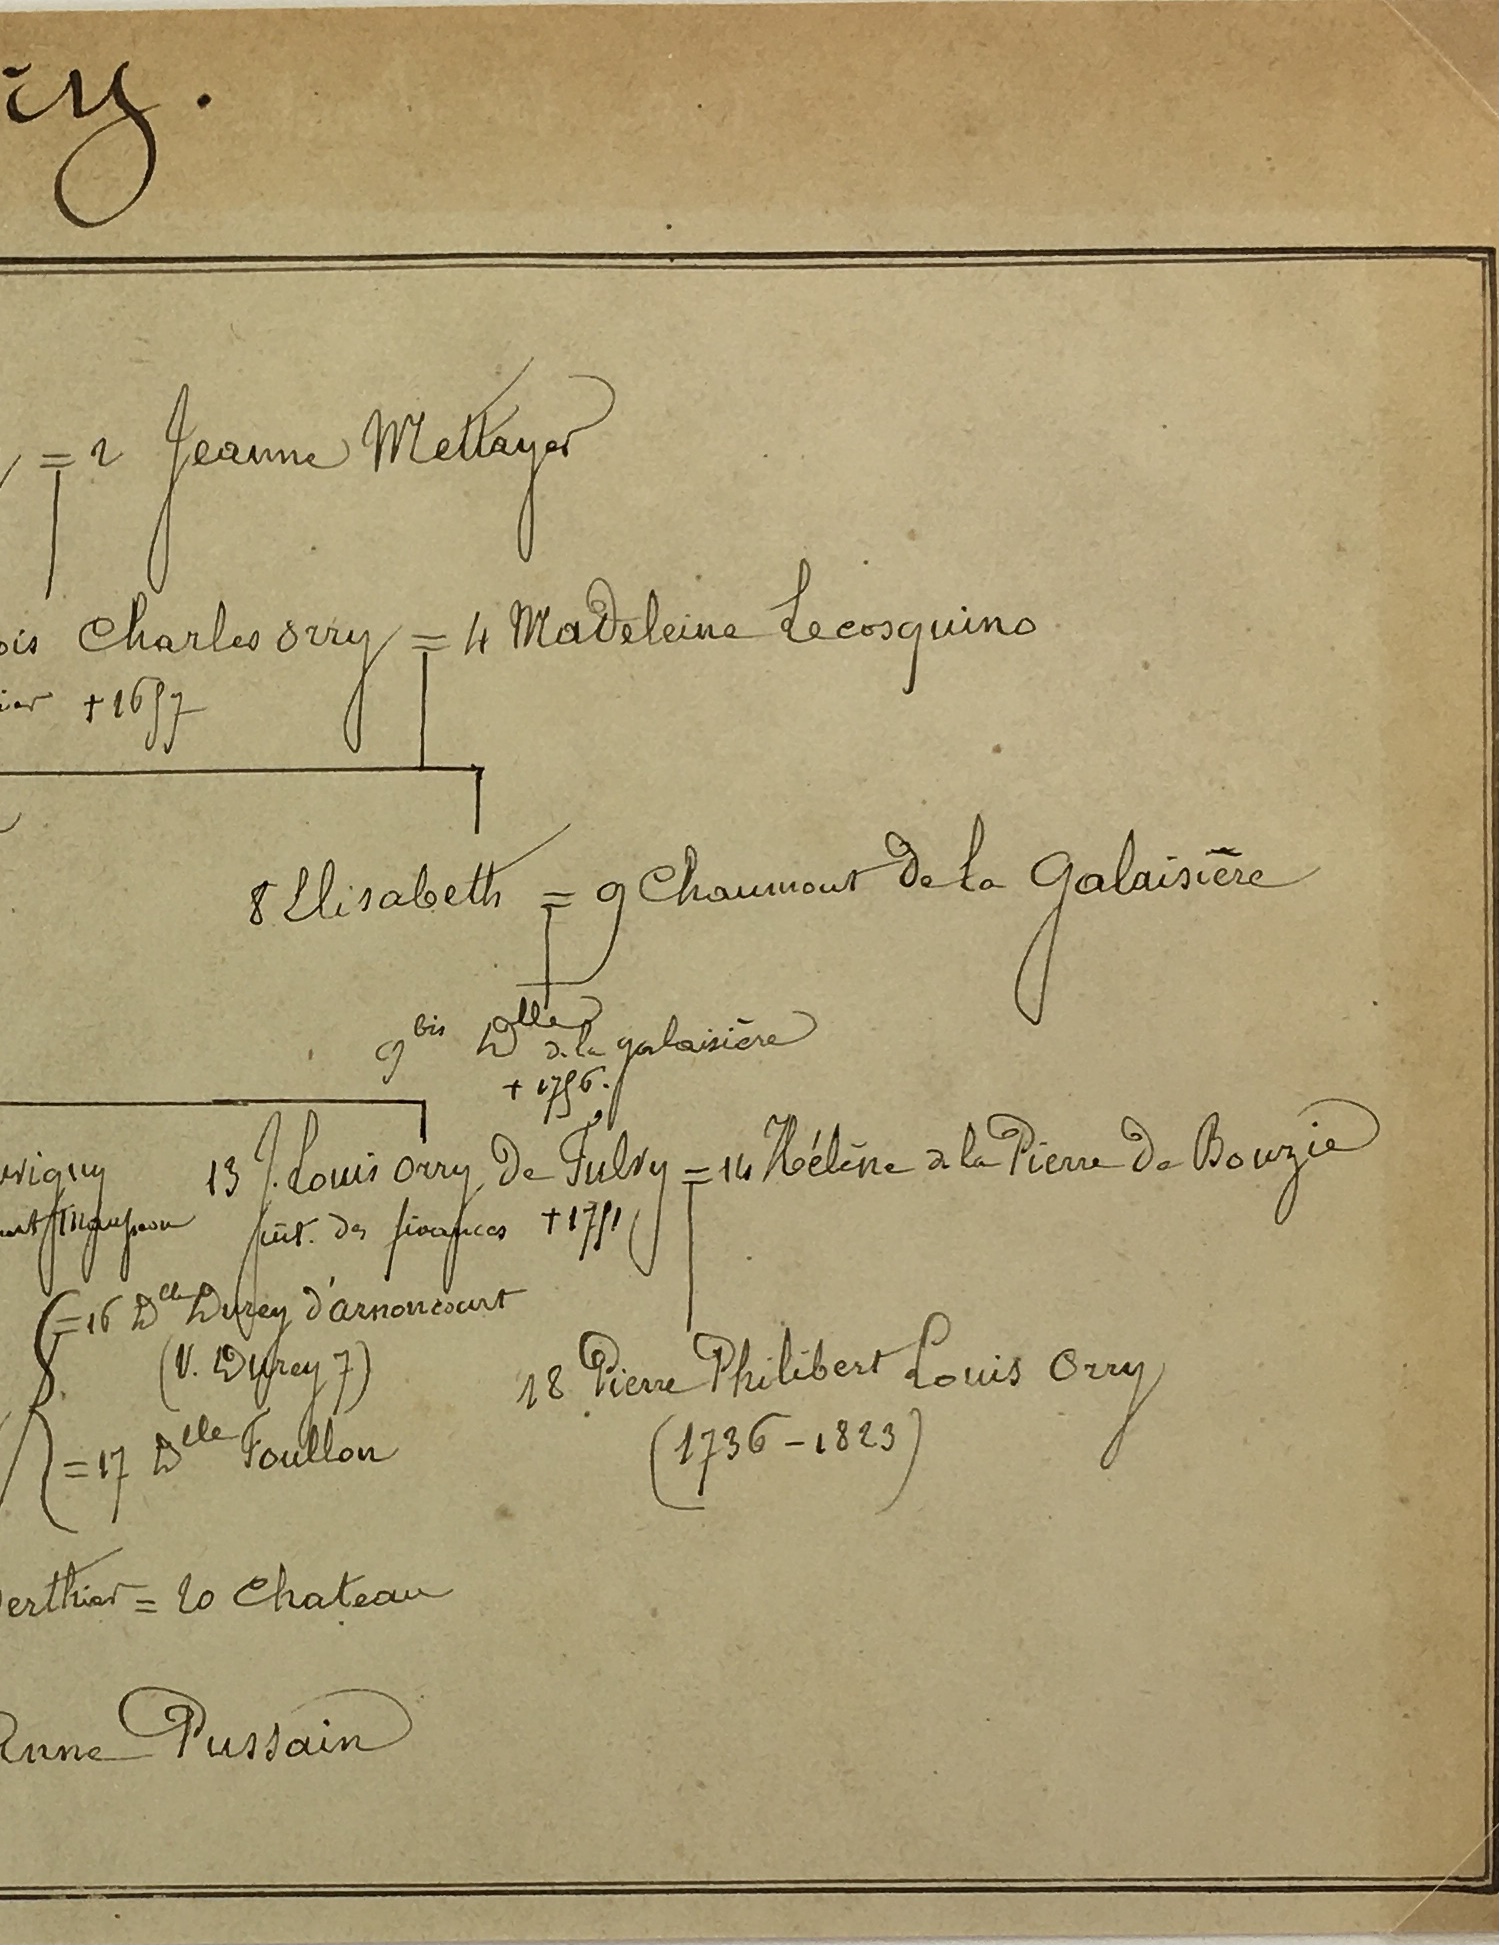 = 2 Jeanne Mettayer
Charles Orry = 4 Madeleine Lecosquino
+ 1657
8 Elisabeth = 9 Chaumont de la Galaisière
9 bis Dlle de la galaisière
+ 1756.
13 J. Louis Orry de Fulvy = 14 Hélène de la Pierre de Bouzie
int. des finances + 1751
= 16 Dlle Durey d'arnoncourt
(V. Durey 7)
18 Pierre Philibert Louis Orry
(1736 - 1823)
= 17 Dlle Foullon
= 20 Chateau
Pussain